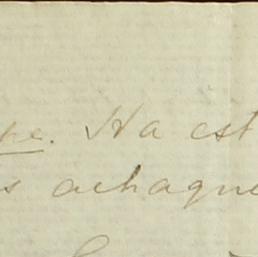 pe. Ha est
s achaque